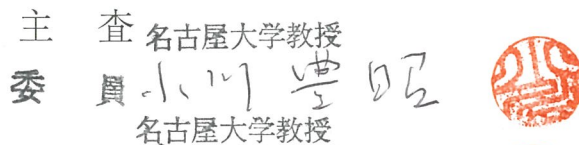 主 査 名古屋大学教授
委 員 小川 豊昭
名古屋大学教授